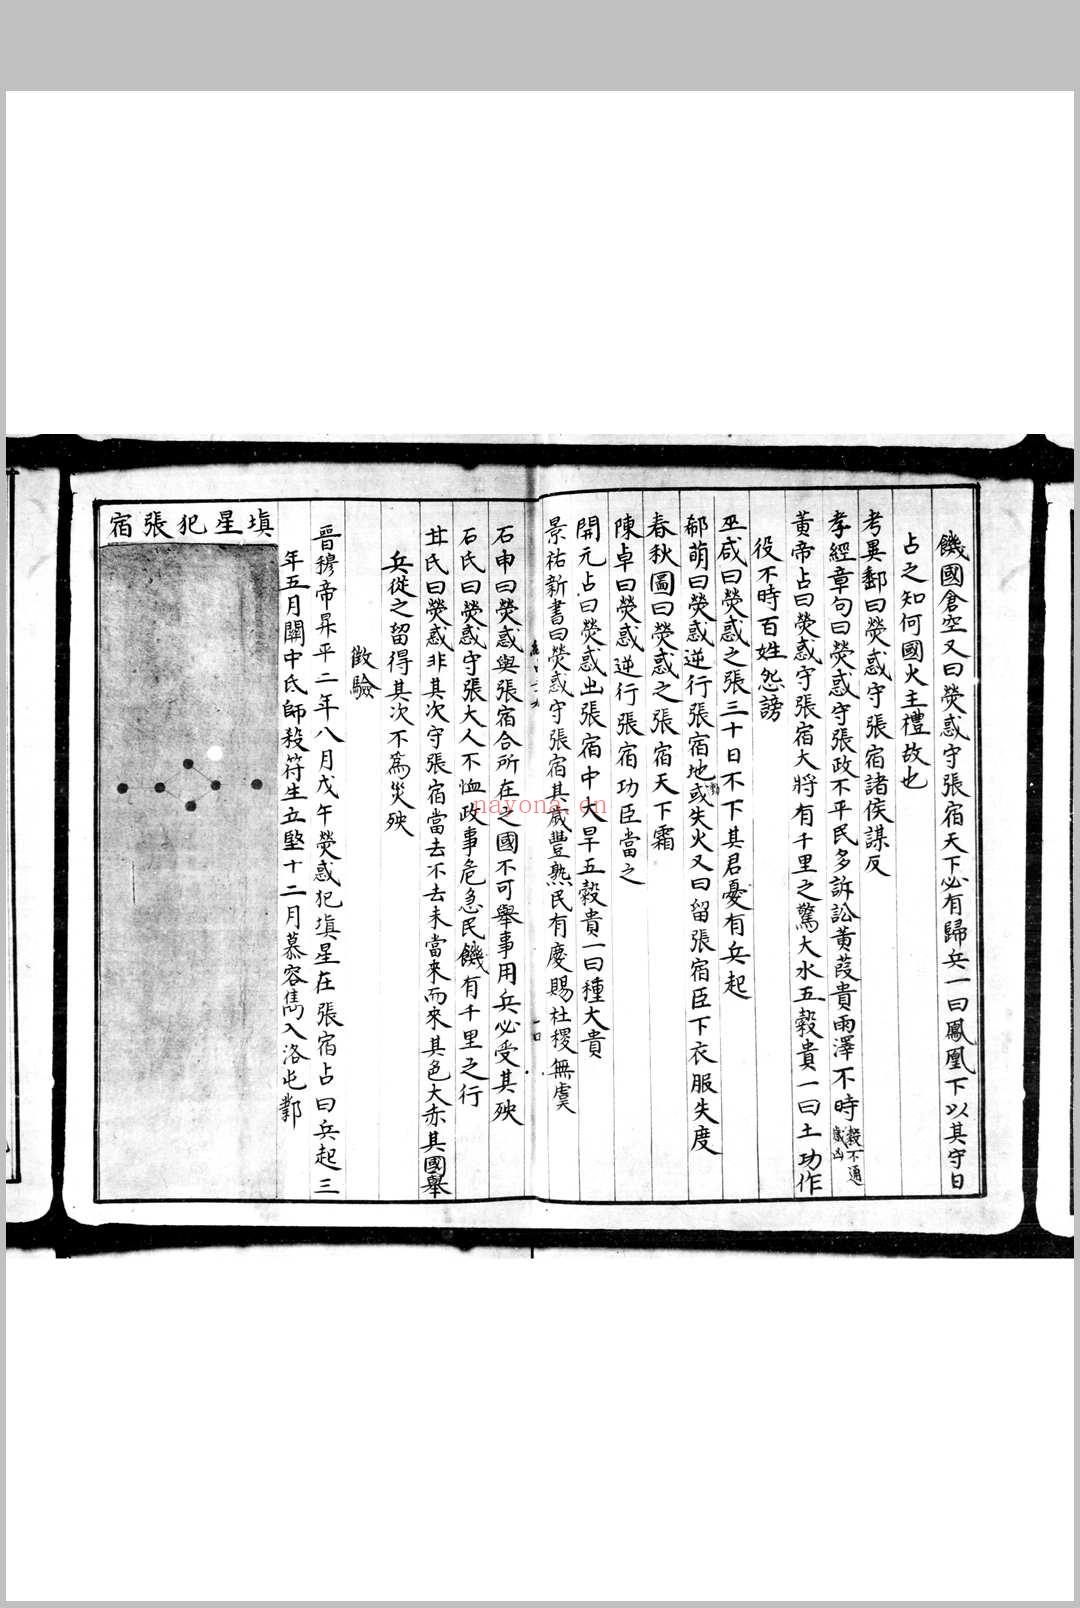 饑國倉空又曰熒惑守張宿天下必有歸兵一曰鳳凰下以其守日
占之知何國火主禮故也
考異郵曰熒惑守張宿諸侯謀反
孝經章句曰熒惑守張政不平民多訴訟黃葭貴雨澤不時穀不通歲凶
黃帝占曰熒惑守張宿大將有千里之驚大水五穀貴一曰土功作
役不時百姓怨謗
巫咸曰熒惑之張三十日不下其君憂有兵起
郗萌曰熒惑逆行張宿地動或失火又曰留張宿臣下衣服失度
春秋圖曰熒惑之張宿天下霜
陳卓曰熒惑逆行張宿功臣當之
開元占曰熒惑出張宿中大旱五穀貴一曰種大貴
景祐新書曰熒惑守張宿其歲豐熟民有慶賜社稷無虞
石申曰熒惑與張宿合所在之國不可舉事用兵必受其殃
石氏曰熒惑守張大人不恤政事危急民饑有千里之行
甘氏曰熒惑非其次守張宿當去不去未當來而來其色大赤其國舉
兵從之留得其次不為災殃
徵驗
晉穆帝昇平二年八月戊午熒惑犯塡星在張宿占曰兵起三
年五月關中氐師殺苻生立堅十二月慕容雋入洛屯鄴
塡星犯張宿
nayona.cn